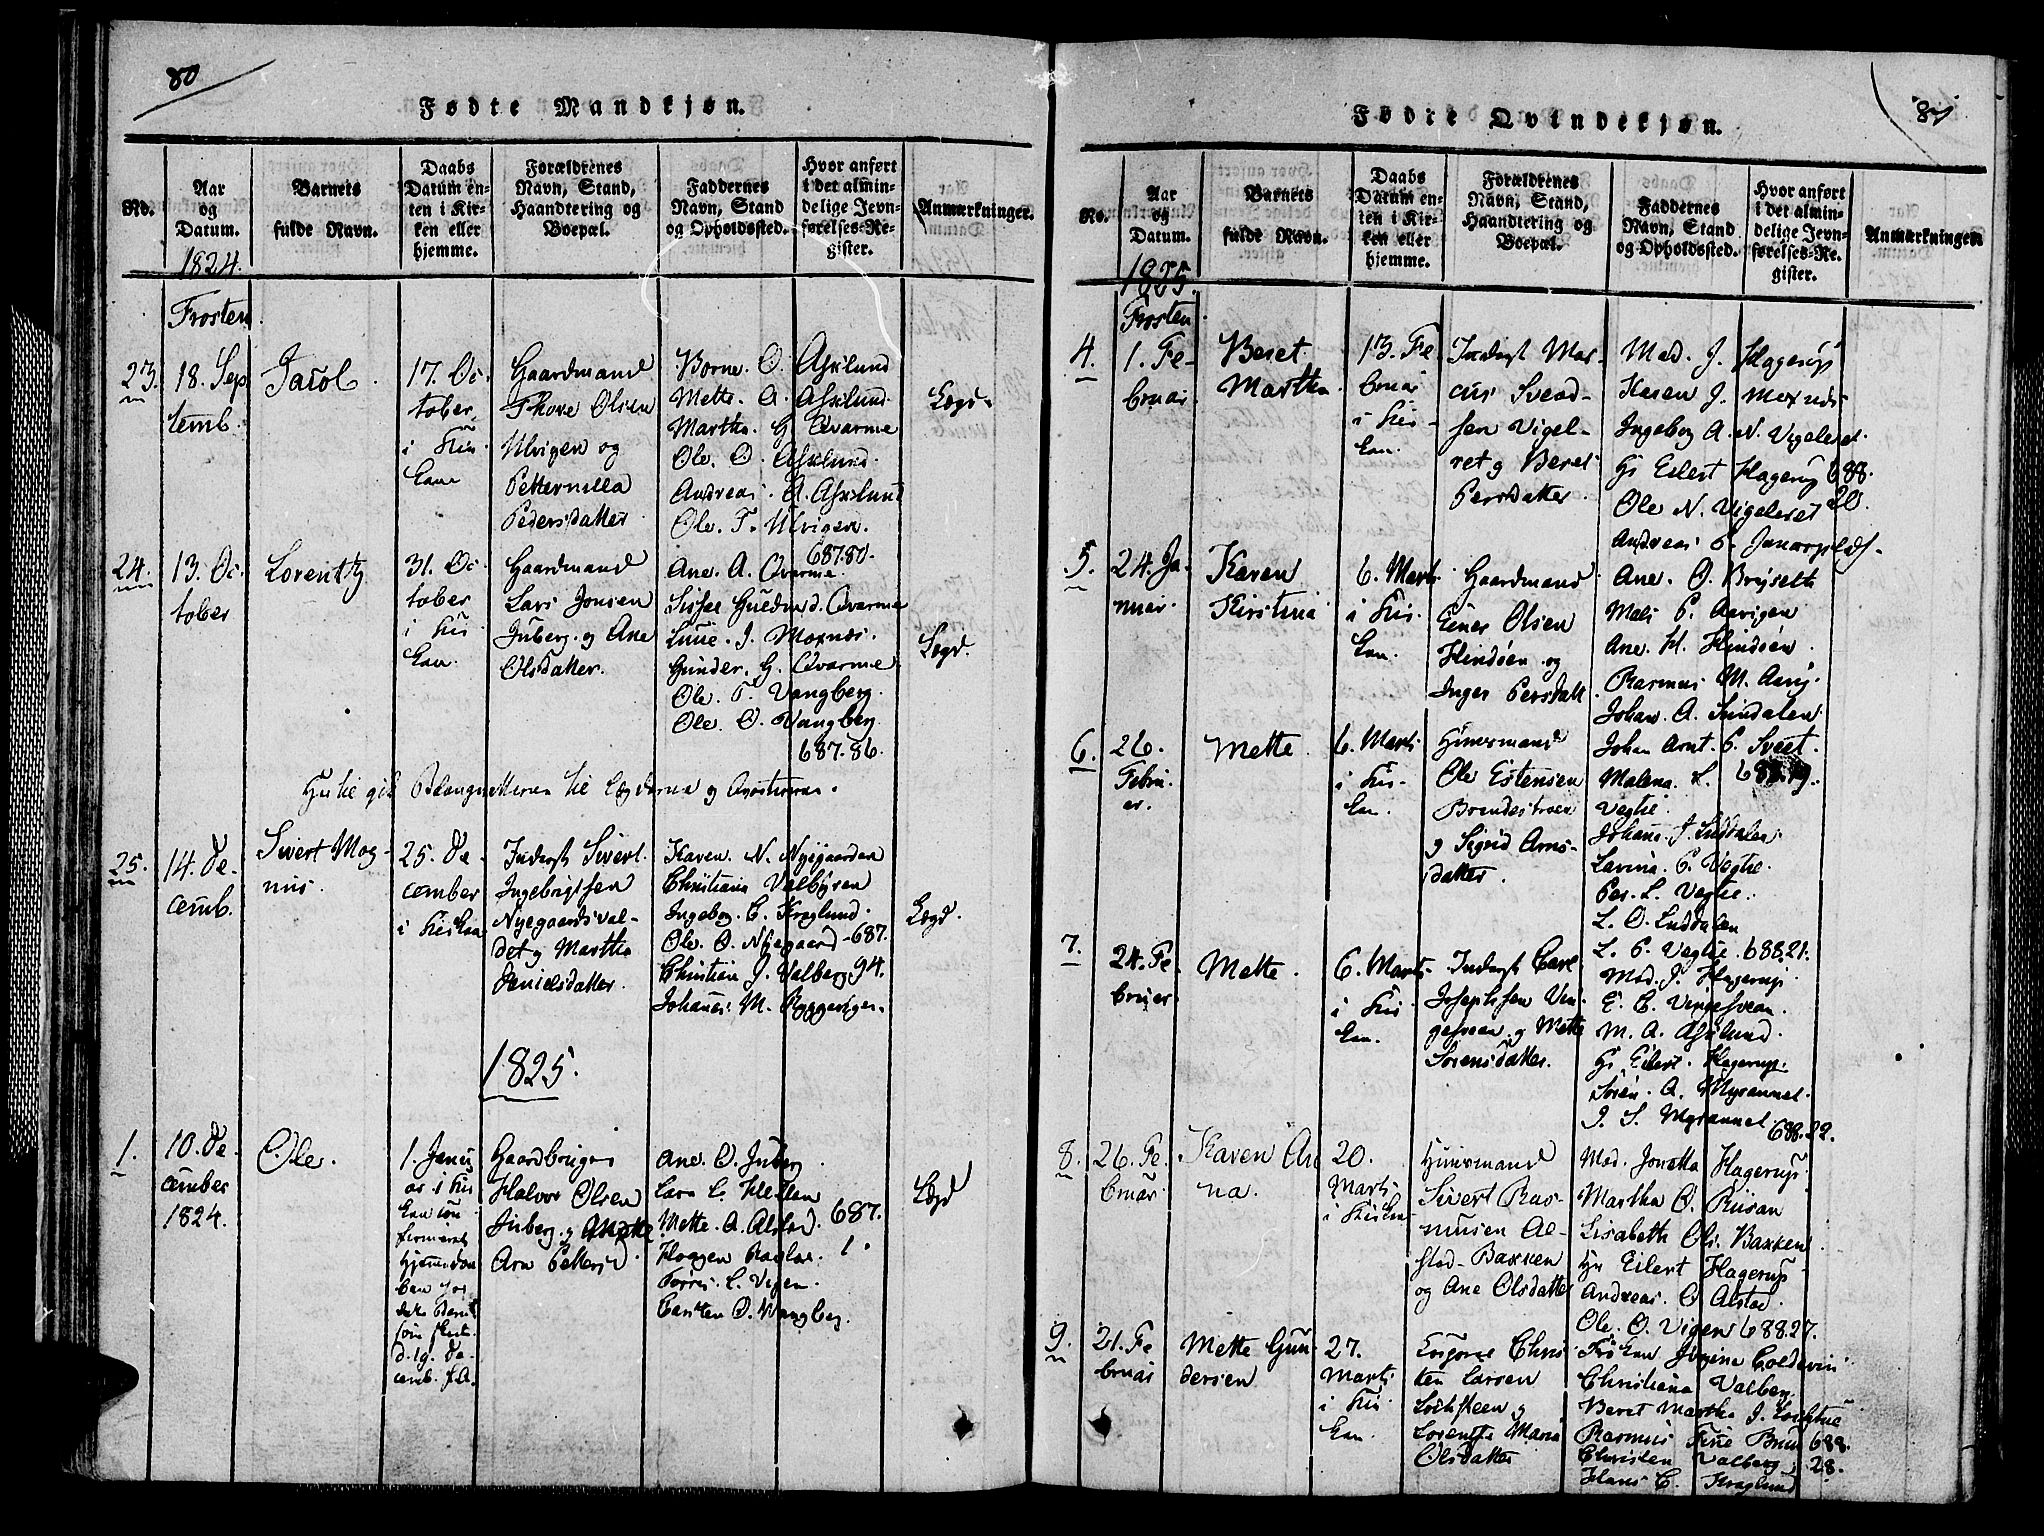 80
Fødte Mandkjøn.
No.
Aar
og
Datum.
1824.
Barnets
fulde Navn.
Daabs
Datum en-
ten i Kir-
ken eller
hjemme.
Forældrenes
Navn, Stand,
Haandtering og
Boepæl.
Faddernes
Navn, Stand
og Opholdssted.
Hvor anført
i det almin-
delige Jevn-
førelses-Re-
gister.
Anmærkninger.
Frosten
23.
18. Sep
temb.
Jacob.
17. Oc-
tober
i Kir-
ken
Gaardmand
Thore Olsen
Ulvigen og
Petternilla
Pedersdatter
Borne. O. Asklund
Mette. A. Asklund.
Martha. H. Qvarme
Ole. O. Asklund.
Andreas. A. Asklund
Ole. T. Ulvigen.
687.80.
Lægd.
24.
13. Oc-
tober
Lorentz
31. Oc-
tober
i Kir-
ken.
Gaardmand
Lars Jonsen
Juberg. og Ane
Olsdatter.
Ane. A. Qvarme.
Qvarme
J. Moxnæs.
Gunder. H. Qvarme
Ole. T. Vangberg.
Ole. O. Vangberg.
687.86.
Lægd.
25.
14. De-
cemb.
Sivert Mag-
nus.
25. De-
cember
i Kirken
Inderst Sivert
Ingebrigtsen
Nyegaardsval-
det og Martha
Danielsdatter.
Karen. N. Nyegaarden
Christiana Valbyren
Ingeborg. C. Kraglund.
Ole. O. Nyegaard - 687.
Christian J. Valberg 94.
Johanes. M. Ryggevigen.
Lægd.
1825.
1.
10. De-
cember
1824.
Ole.
1. Janu-
ar i Kir
ken
Gaardbruger
Halvor Olsen
Juberg. og
Arn Pettersd
Ane. O. Juberg
Lars L. Hellen
Mette. A. Alstad. 687.
Haagen 1.
L. Vigen.
Carsten O. Wangberg.
Lægd
81
Fødte Qvindekjøn.
No.
Aar
og
Datum.
1825.
Barnets
fulde Navn.
Daabs
Datum en-
ten i Kir-
ken eller
hjemme.
Forældrenes
Navn, Stand,
Haandtering og
Boepæl.
Faddernes
Navn, Stand
og Opholdssted.
Hvor anført
i det almin-
delige Jevn-
førelses-Re-
gister.
Anmærkninger
Frosten
4.
1. Fe-
bruar
Beret
Martha
13. Fe
bruar
i Kir-
ken.
Inderst Mar-
cus Svend-
sen Vigel-
ret og Beret
Persdatter.
Mad. J. Hagerup
Karen J. Moxnes
Ingeborg A. N. Vigeleret.
Hr Eilert Hagerup 688.
Ole N. Vigeleret 20.
Andreas P.
5.
24. Ja-
nuar.
Karen
Kirstina
6. Marts
i Kir-
ken.
Gaardmand
Einer Olsen
Hindøen og
Inger Persdatt
Ane. O. Brysetth
Mali P. Aavigen
Ane. H. Hindøen.
Rasmus M. Aavig.
Johan. A. Sundalen.
6.
26.
Febru-
ar.
Mette.
6. Marts
i Kir-
ken.
Huusmand
Ole Estensen
Brendestroen
og Sigrid Arns-
datter.
Johan Arnt. P. Sveet.
Malena. L. 688.19.
Vegtie.
Johanes. J. Luddalen.
Lavina. P. Vegtie.
Per. L. Vegtie.
L. O. Luddalen
L. P. Vegtie. 688.21.
7.
24. Fe-
bruar.
Mette.
6. Marts
i Kir-
ken.
Inderst Carl
Josephsen Vin-
gesveen. og Mette
Sorensdatter.
Mad. J. Hagerup.
E. C. Vingesveen.
M. A. Asklund.
Hr Eilert. Hagerup.
Søren. A. Myrannet.
J. S. Myrannet.
688.22.
8.
26. Fe-
bruar
Karen An
na.
20.
Marts
i Kirken
Huusmand
Sivert Ras-
musen Al-
stad-Bakken
og Ane Olsdatter
Mad. Jonetta Hagerup.
Martha O. Riisan
Lisabeth Ols. Bakken
Hr Eilert Hagerup
Andreas. O Alstad.
Ole. O. Vigen 688.27.
9.
21. Fe
bruar
Mette Gun
dersen
27.
Marts
i Kir
ken.
Corporal Chris
ten Larsen
Lochsteen og
Lorentse Maria
Olsdatter
Frøken Jørgine Coldevin
Christiana Valberg.
Beret Martha J.
Rasmus Brun 688.
Christen Valberg 28.
Hans C. Kraglund